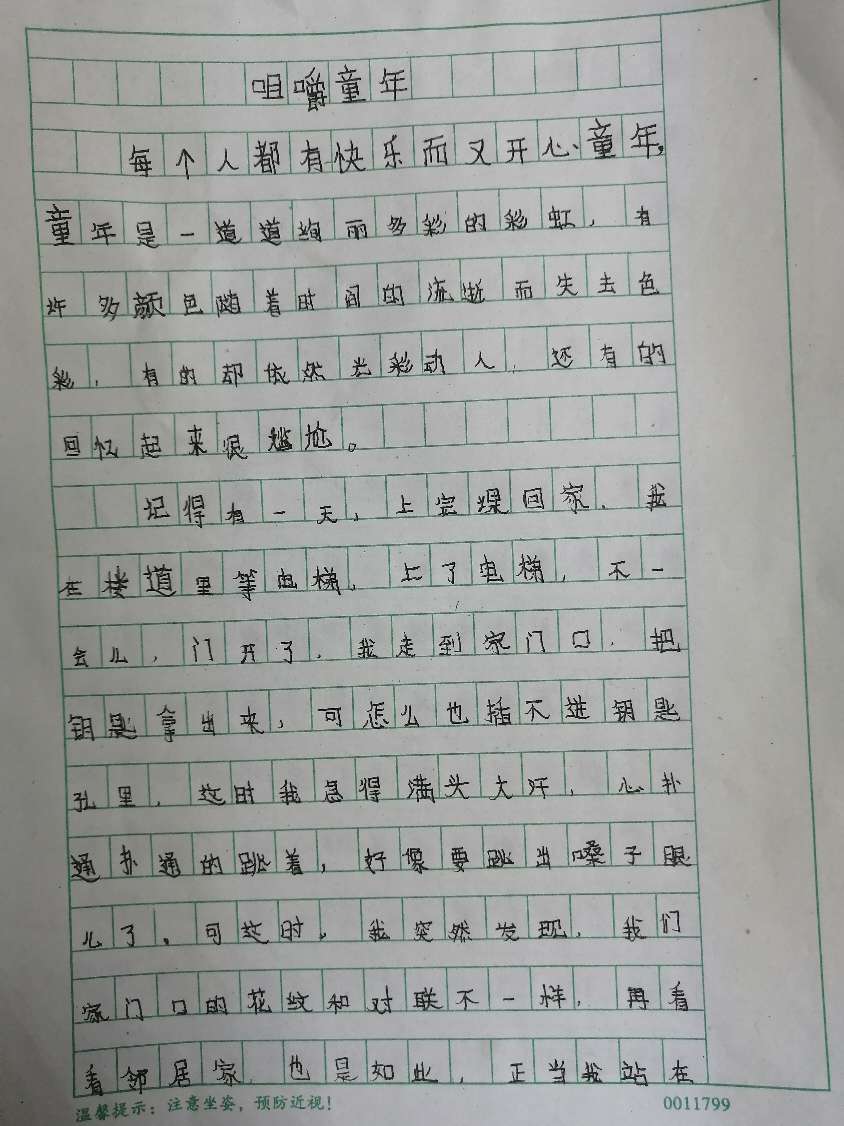 咀嚼童年
每个人都有快乐而又开心、童年,
童年是一道道绚丽多彩的彩虹,有
许多颜色随着时间的流逝而失去色
彩,有的却依然光彩动人,还有的
回忆起来很尴尬。
记得有一天,上完课回家,我
在楼道里等电梯,上了电梯,不一
会儿,门开了,我走到家门口,把
钥匙拿出来,可怎么也插不进钥匙
孔里,这时我急得满头大汗,心扑
通扑通的跳着,好像要跳出嗓子眼
儿了。可这时,我突然发现,我们
家门口的花纹和对联不一样,再看
看邻居家,也是如此,正当我站在
温馨提示:注意坐姿,预防近视!
0011799